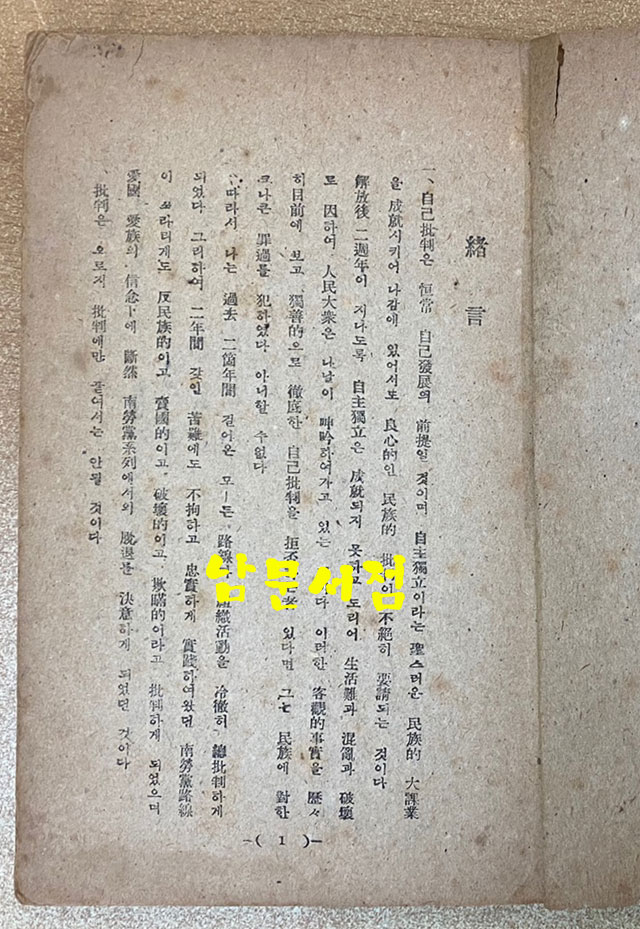 緖言
一、自己批判은 恒常 自己發展의 前提일 것이며 自主獨立이라는 聖스러운 民族的 大課業
을 成就시키어 나감에 있어서도 良心的인 民族的 批 不絕히 要請되는 것이다
解放後 二週年이 지나도록 自主獨立은 成就되지 못하고 도리어 生活難과 混亂과 破壞
로 因하여 人民大衆은 나날이 呻吟하여가고 있는 다 이러한 客觀的事實을 歷々
히 目前에 보고 獨善的으로 徹底한 自己批判을 拒否 者 있다면 그는 民族에 對한
크나큰 罪過를 犯하였다 아니할 수없다
、따라서 나는 過去 二箇年間 걸어온 모ー든 路線 組織活動을 冷徹히 總批判하게
되었다 그리하여 二年間 갖인 苦難에도 不拘하고 忠實하게 實踐하여왔던 南勞黨路線
이 쏘라리게도 反民族的이고 賣國的이고 破壞的이고 欺瞞的이라고 批判하게 되었으며
愛國 愛族의 信念下에 斷然 南勞黨系列에서의 脫退를 決意하게 되었던 것이다
、批判은 오로지 批判에만 끝여서는 안될 것이다
—( 1 )—
남문서점